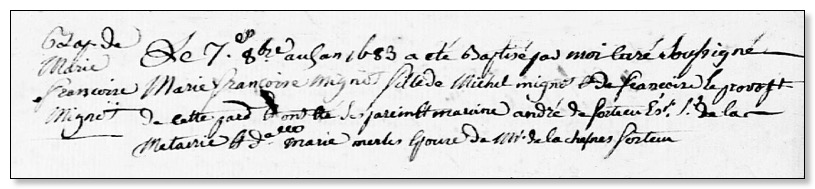 Bap. de
Marie
françoise
Mignot
Le 7.e 8bre audan 1683 a eté Baptisé par moi curé soussigné
Marie françoise Mignot fille de Michel mignot & de françoise le provost
de cette par. & ont eté ses parein & mareine andré de Esr. Sr. de la
Metairie & d.elle marie merles Epouse de Mr. de la